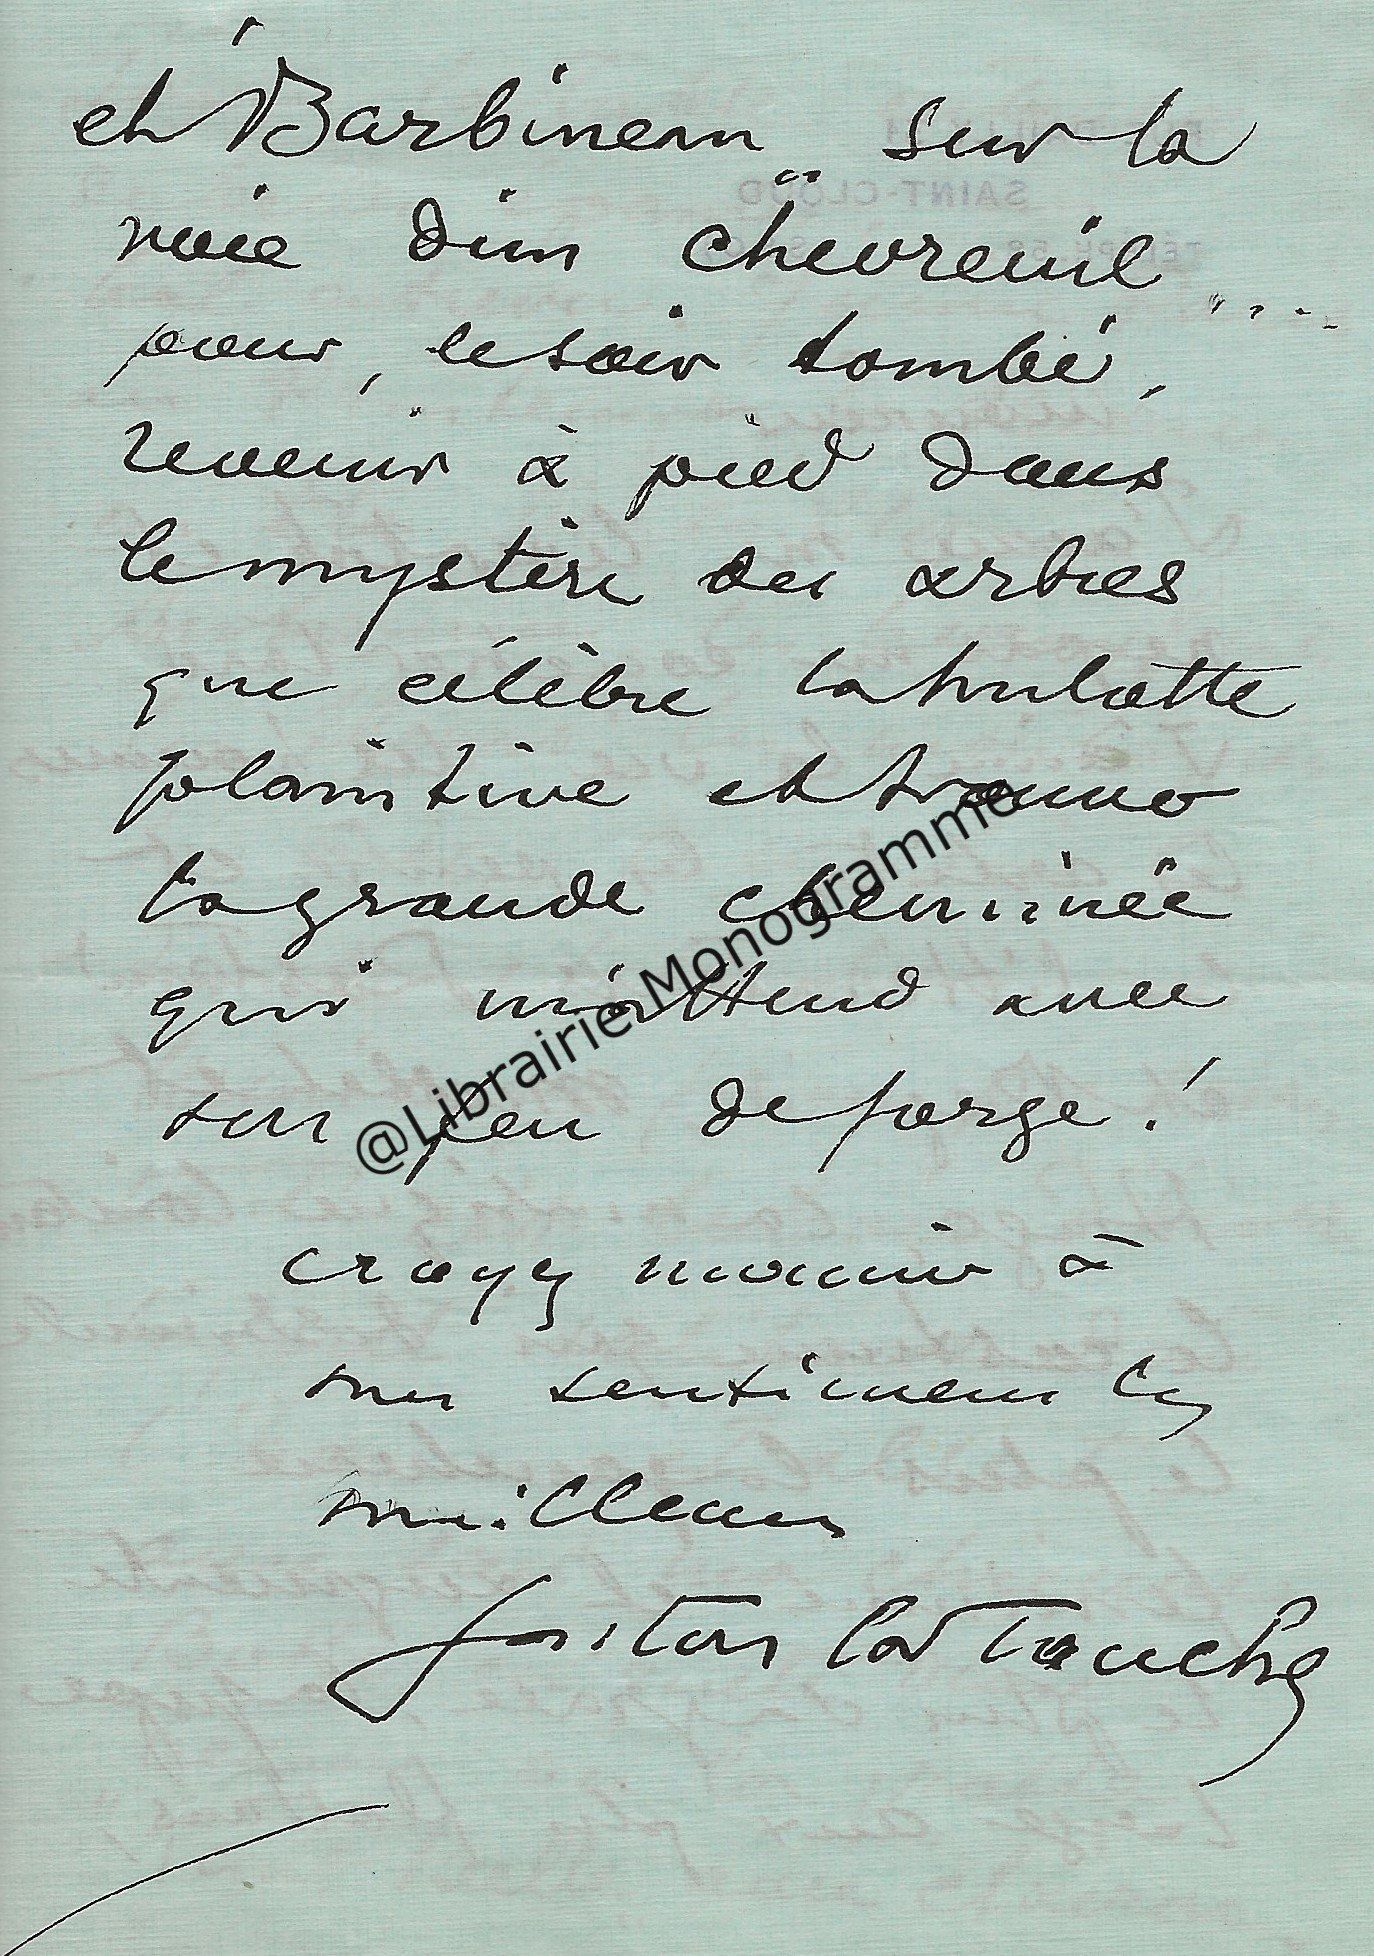 et Barbineau" sur la
voie d'un chevreuil....
pour, le soir tombé,
revenir à pied dans
le mystère des arbres
que célèbre la hulotte
plaintive et trouver
la grande cheminée
qui m'attend avec
son feu de forge!
croyez m'avoir à
mes sentiments les
meilleurs
Gaston La Touche
@Librairie.Monogramme
SAINT-CLOUD